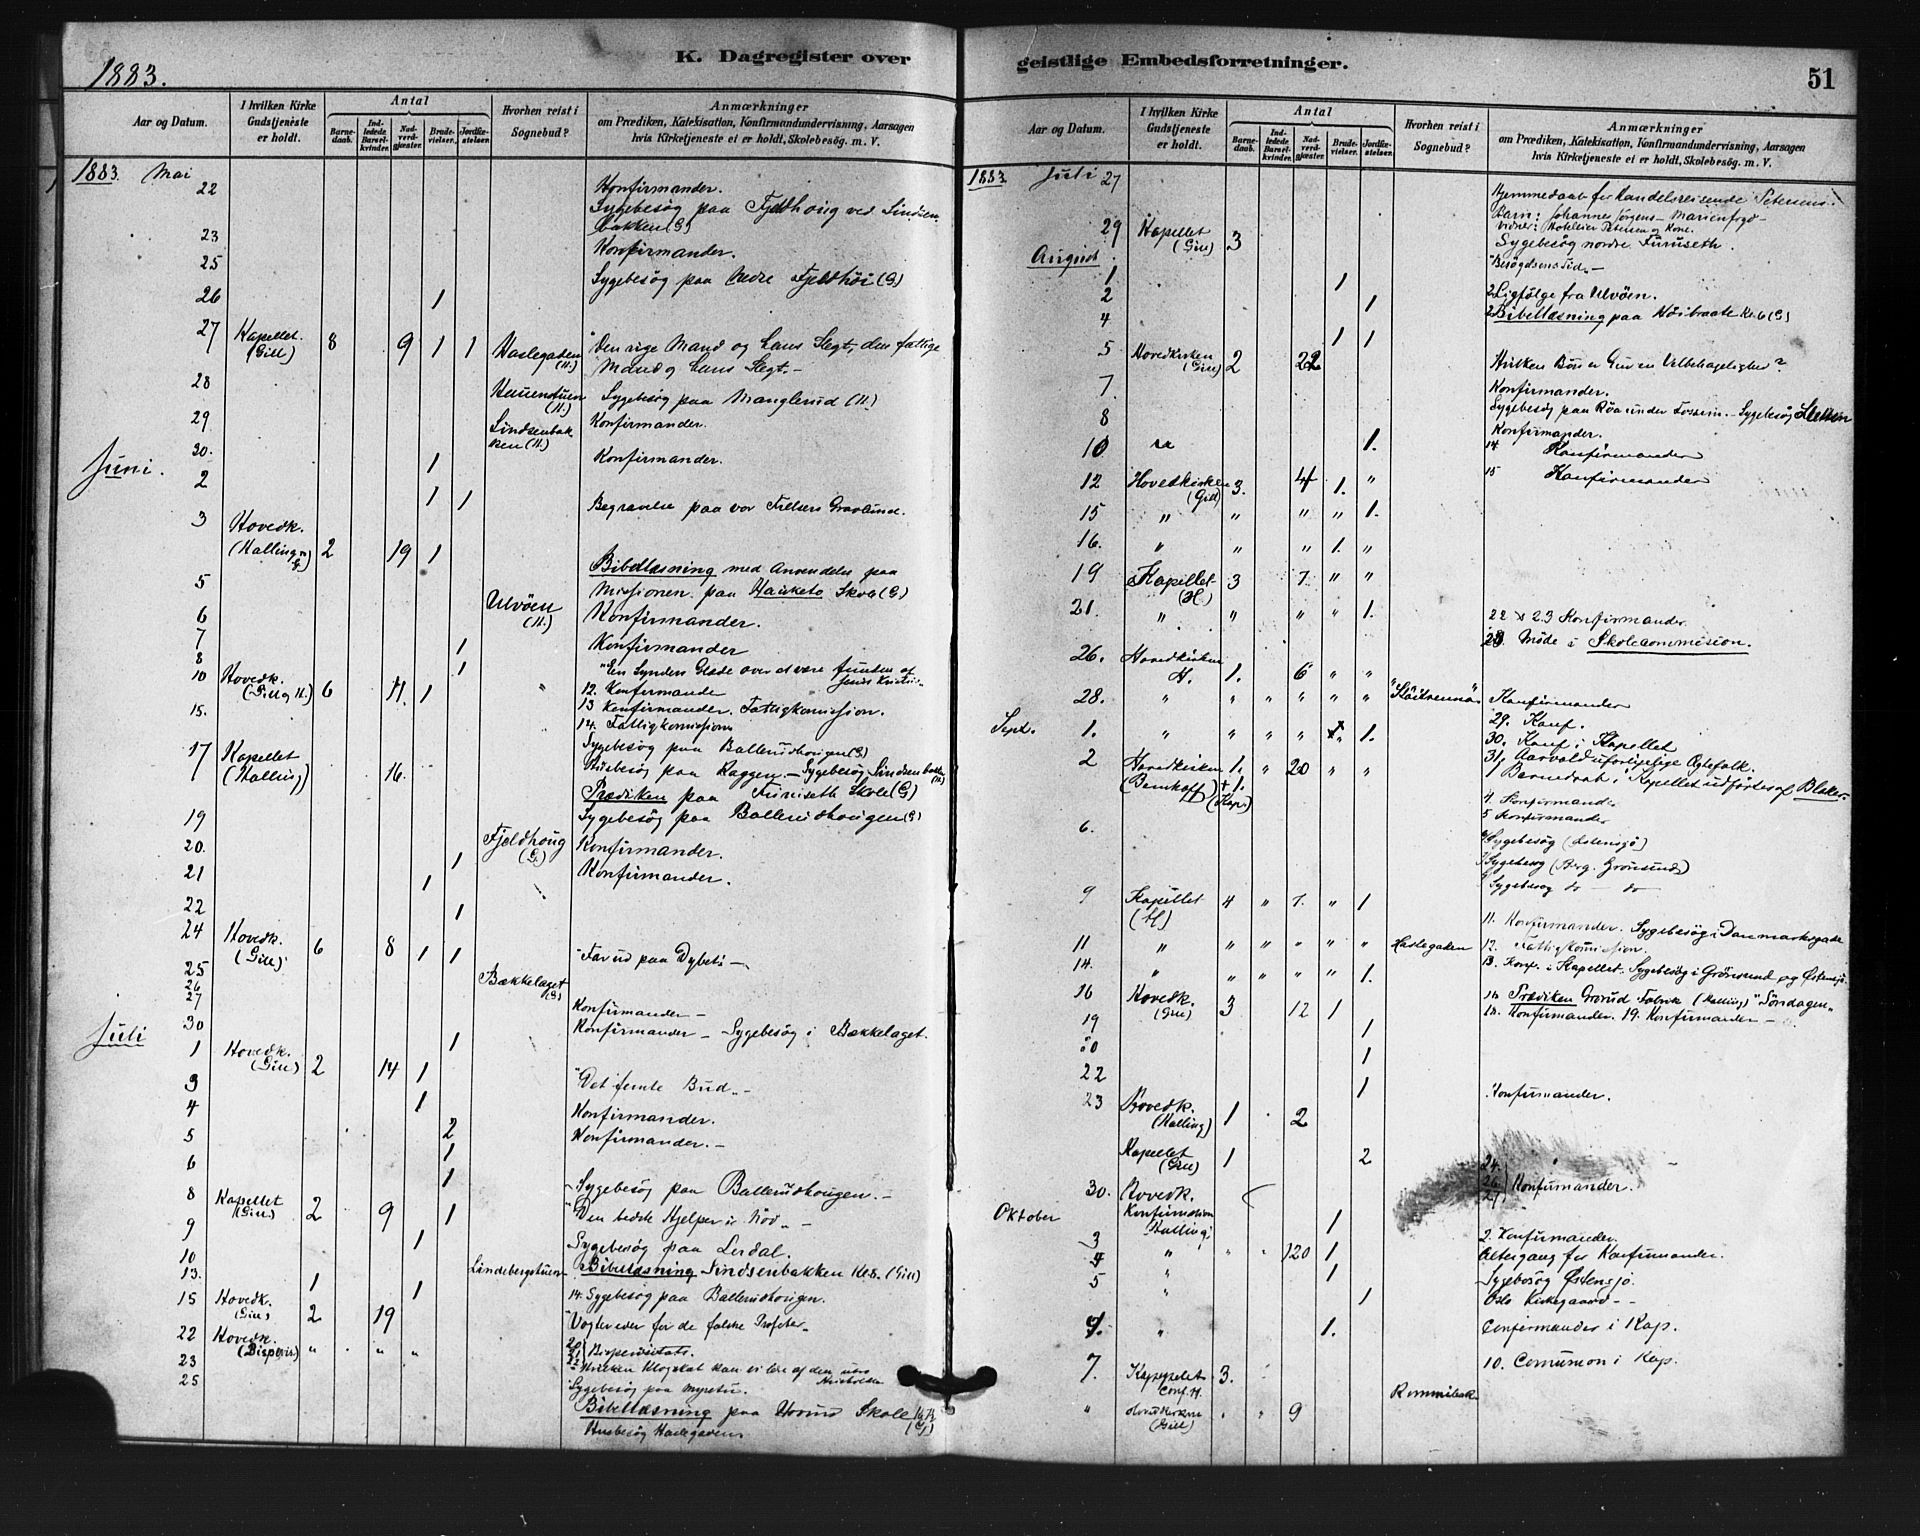 1883.
K. Dagregister over
Aar og Datum.
I hvilken Kirke Gudstjeneste er holdt.
Antal
Barnedaab.
Indledede Barselkvinder.
Nadverdgjæster.
Brudevielser.
Jordfæstelser.
Hvorhen reist i Sognebud?
Anmærkninger
om Prædiken, Katekisation, Konfirmandundervisning, Aarsagen
hvis Kirketjeneste ei er holdt, Skolebesøg. m. V.
1883. Mai
22 Konfirmander.
Sygebesøg paa Fjeldhoug ved Lindsen
bakken (G)
23 Konfirmander.
25 Sygebesøg paa Nedre Fjeldhöi (G)
26 1
27 Kapellet. (Gill) 8 9 1 1 Haslegaden (H.) "Den rige Mand og hans Slegt, den fattige
Mand og hans Slegt.-
28 (H.) Sygebesøg paa Manglerud (H.)
29 Lindsenbakken (H.) Konfirmander.
30. 1 Konfirmander.
Juni.
2 1 1
3 Hovedk. (Halling og G) 2 19 1 Begravelse paa vor Frelsers Gravlund.
Bibellæsning med Anvendelse paa
5 Missionen paa Hauketo Skole (G)
6 Ulvöen (H.) Konfirmander.
7 1 Konfirmander
8 1 "En Synders Glæde over at være funden af
Jesus Kristus"
10 Hovedk. (Gill og H.) 6 11. 1 " 12. Konfirmander
15. 13 Konfirmander. Fattigkomission.
14. Fattigkomission
17 Kapellet (Halling) 16. Sygebesøg paa Ballerudhougen (G)
Husbesøg paa Raggen - Sygebesøg Lindsenbakken (H)
Prædiken paa Furuseth Skole (G)
19 Sygebesøg paa Ballerudhougen (G)
20. 1 Fjeldhoug (G.) Konfirmander.
21 1 Konfirmander.
22 1
24 Hovedk. (Gill) 6 8 1 1 "Far ud paa Dybet" -
25 Bækkelaget (G)
26
27 Konfirmander -
30 1 Konfirmander - Sygebesøg i Bækkelaget.
Juli
1 Hovedk. (Gill) 2 14 1
3 1 "Det femte Bud" -
4 2 Konfirmander.
5 1 Konfirmander. -
6 1
8 Kapellet (Gill.) 2 9 1 - Sygebesøg paa Ballerudhougen. -
9 1 "Den bedste Hjelper i Nöd" -
10 Sygebesøg paa Lerdal.
13. 1 1 Lindebergstuen Bibellæsning Lindsenbakken Kl. 8. (Gill)
15 Hovedk. (Gill) 2 19 14. Sygebesøg paa Ballerudhougen.
"Vogter eder for de falske Profeter"
22 Hovedk. (Bispevis.) " " " 20 21 22 Bispevisitats.
23 Hvilken Klogskab kan vi lære af den
25 Sygebesøg paa
Bibellæsning paa Hovind Skole
Husbesøg Haslegaden
geistlige Embedsforretninger.
51
Aar og Datum.
I hvilken Kirke Gudstjeneste er holdt.
Antal
Barnedaab.
Indledede Barselkvinder.
Nadverdgjæster.
Brudevielser.
Jordfæstelser.
Hvorhen reist i Sognebud?
Anmærkninger
om Prædiken, Katekisation, Konfirmandundervisning, Aarsagen
hvis Kirketjeneste ei er holdt, Skolebesøg. m. V.
1883. Juli 27 Hjemmedaab for Handelsreisende Petersens
Barn: Johannes Jørgens-
29 Kapellet (Gill) 3 Sygebesøg nordre Furuseth.
August
"Besøgelsens Tid" -
1 1
2 1 2 Ligfölge fra Ulvöen.
4 1 1 2 Bibellæsning paa Höibraate Kl. 6 (G)
5 Hovedkirken (Gill) 2 22 Hvilken Bön er Gud en Velbehagelighed?
7. Konfirmander.
8 Sygebesøg paa Röa under Fossum. - Sygebesøg
Konfirmander.
10 1. 14 Konfirmander
12 Hovedkirken (Gill) 3. 4 1. " 15 Konfirmander
15 " " " " 1.
16. " " " 1. "
19 Kapellet (H) 3 7. " "
21. " " " " 1. 22 & 23 Konfirmander.
28 Møde i Skolecommision.
26. Hovedkirken H. 1. 6 " "
28. " " " " " " Konfirmander
29. Konf.
Sept. 1. " " " " 1. 30. Konf. i Kapellet
2 Hovedkirken (Bernhoff) 1. + 1. (Kap.) " 20 " " 31, Aarvold uforligelige Ægtefolk.
Barnedaab i Kapellet udførtes af Blaker.
4. Konfirmand.
5 Konfirmander
6. Sygebesøg (Østensjö)
Sygebesøg (Berg. Grönsund)
Sygebesøg do - do
9 Kapellet (H) 4 " 7. " 1
11. Konfirmander. Sygebesøg i Danmarksgade
11 " " " " " " Haslegaden 12. Fattigkomission.
14. " " " " " 1. 13. Konf. i Kapellet. Sygebesøg i Grönsund og Østensjö
16 Hovedk. (Gill) 3 12 1 16 Prædiken Grorud Fabrik (Halling) "Söndagen"
19 1 18. Konfirmander. 19. Konfirmander -
20 1
22 1
23 Hovedk. (Halling) 1 2 Konfirmander.
Kapellet (Gill) 1 2
24.
26
27 Konfirmander.
30. Hovedk.
Konfirmation
Halling
Oktober 1
3 " " " 120 1 2. Konfirmander.
4 " 1 Altergang for Konfirmander.
5 " 1 Sygebesøg Østensjö.
Oslo Kirkegaard - -
" 1. Confirmander i Kap.
7. Kappelet Conf. H. 3. 10. Comunion i Kap.
" Hovedkirken (Gill) " " 9